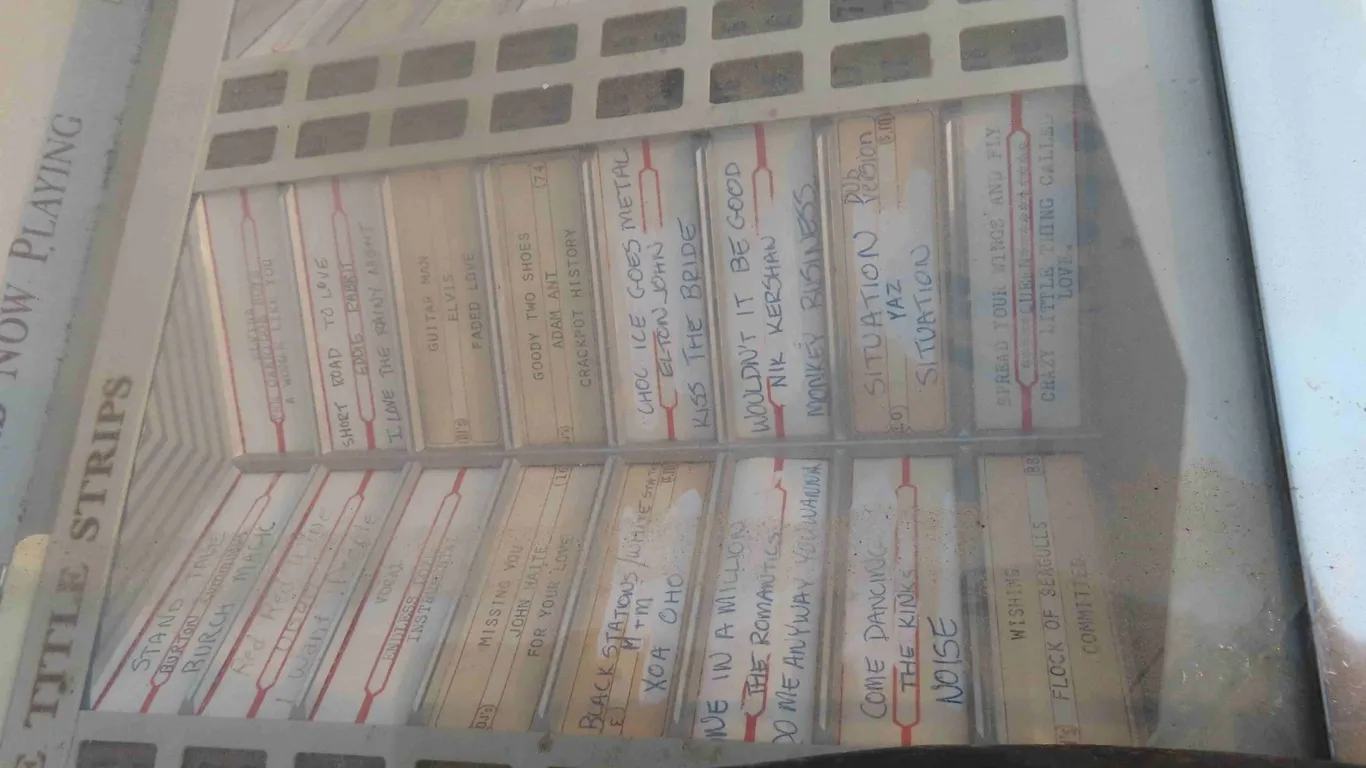 NOW PLAYING
TITLE STRIPS
A WOMAN LIKE YOU
SHORT ROAD TO LOVE
EDDIE RABBIT
I LOVE THE RAINY NIGHT
GUITAR MAN
ELVIS
FADED LOVE
GOODY TWO SHOES
ADAM ANT
CRACKPOT HISTORY
CHOC ICE GOES METAL
ELTON JOHN
KISS THE BRIDE
WOULDN'T IT BE GOOD
NIK KERSHAN
MONKEY BUSINESS
SITUATION DUB VERSION
YAZ
SITUATION
SPREAD YOUR WINGS AND FLY
QUEEN
CRAZY LITTLE THING CALLED
LOVE
STAND
BURCH MAGIC
Red Red Wine
VOCAL
ENDLESS
MISSING YOU
JOHN WAITE
FOR YOUR LOVE
BLACK STATIONS/WHITE STAT
M+M
XOA OHO
ONE IN A MILLION
THE ROMANTICS
DO ME ANYWAY YOU WANNA
COME DANCING
THE KINKS
NOISE
WISHING
FLOCK OF SEAGULLS
COMMITTED